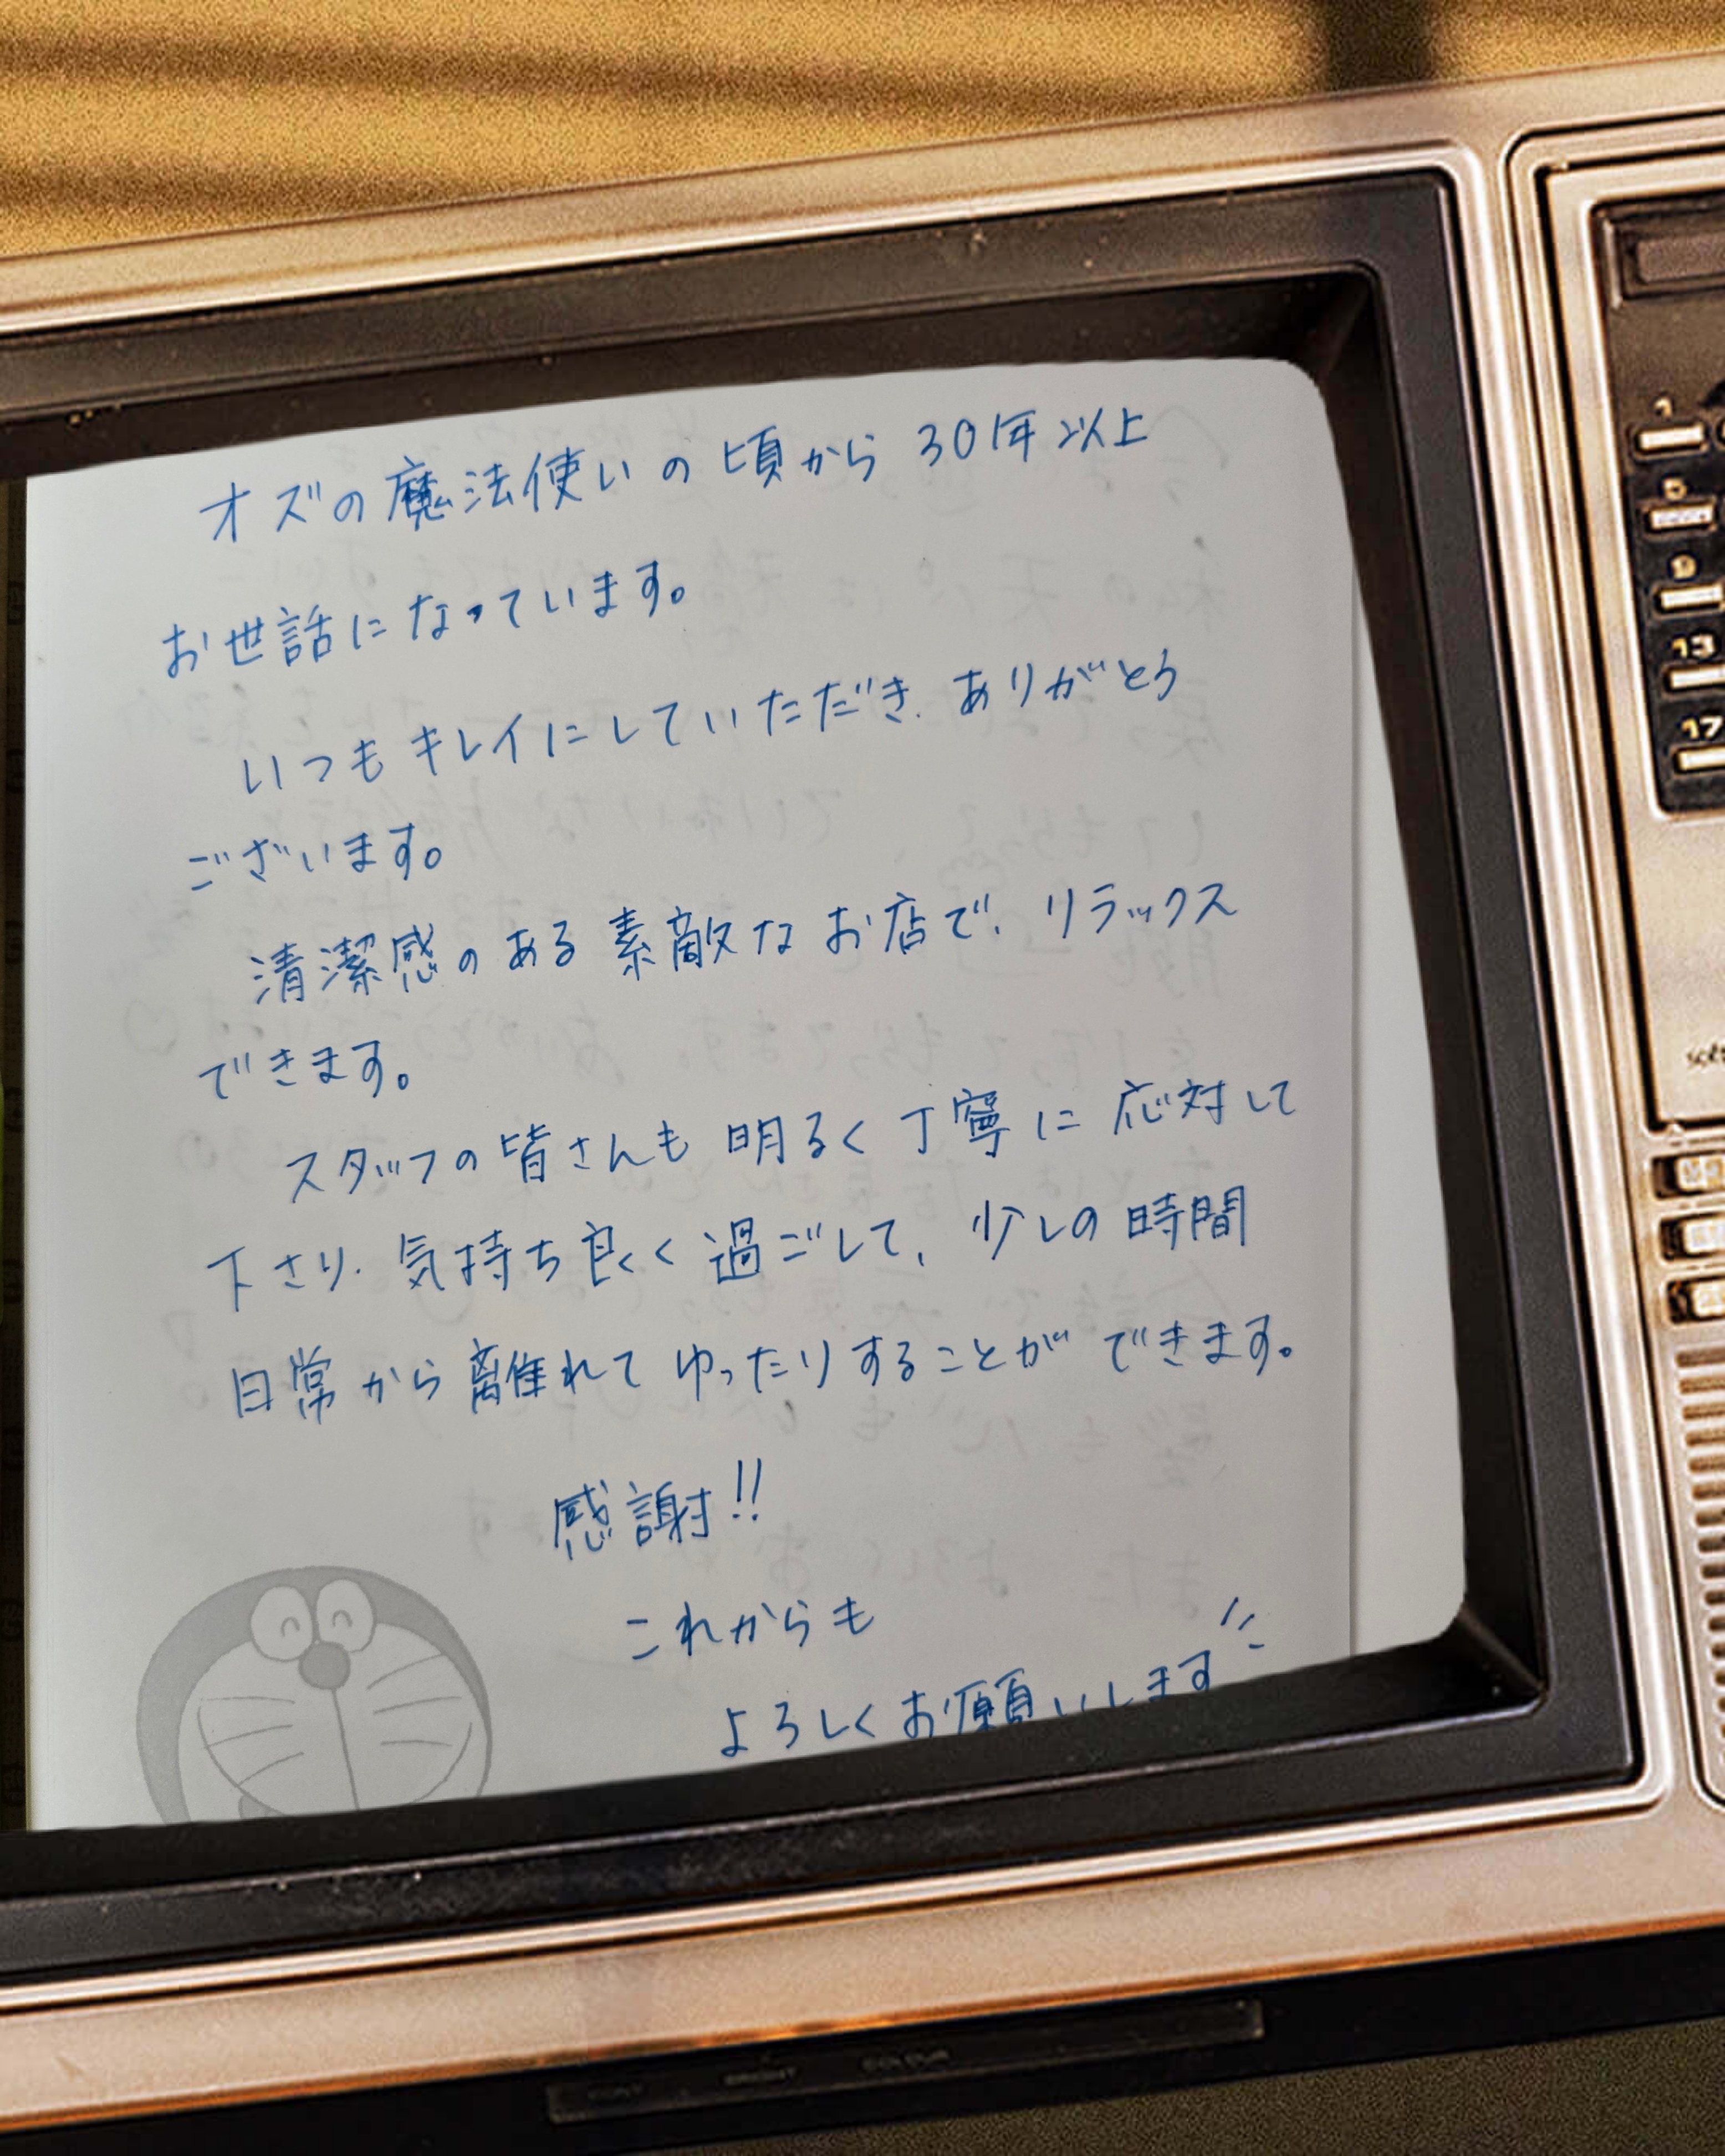 オズの魔法使いの頃から30年以上
お世話になっています。
いつもキレイにしていただき、ありがとう
ございます。
清潔感のある素敵なお店で、リラックス
できます。
スタッフの皆さんも明るく丁寧に応対して
下さり、気持ち良く過ごして、少しの時間
日常から離れてゆったりすることができます。
感謝!!
これからも
よろしくお願いします
1
5
9
13
17
BRIGHT
COLOUR